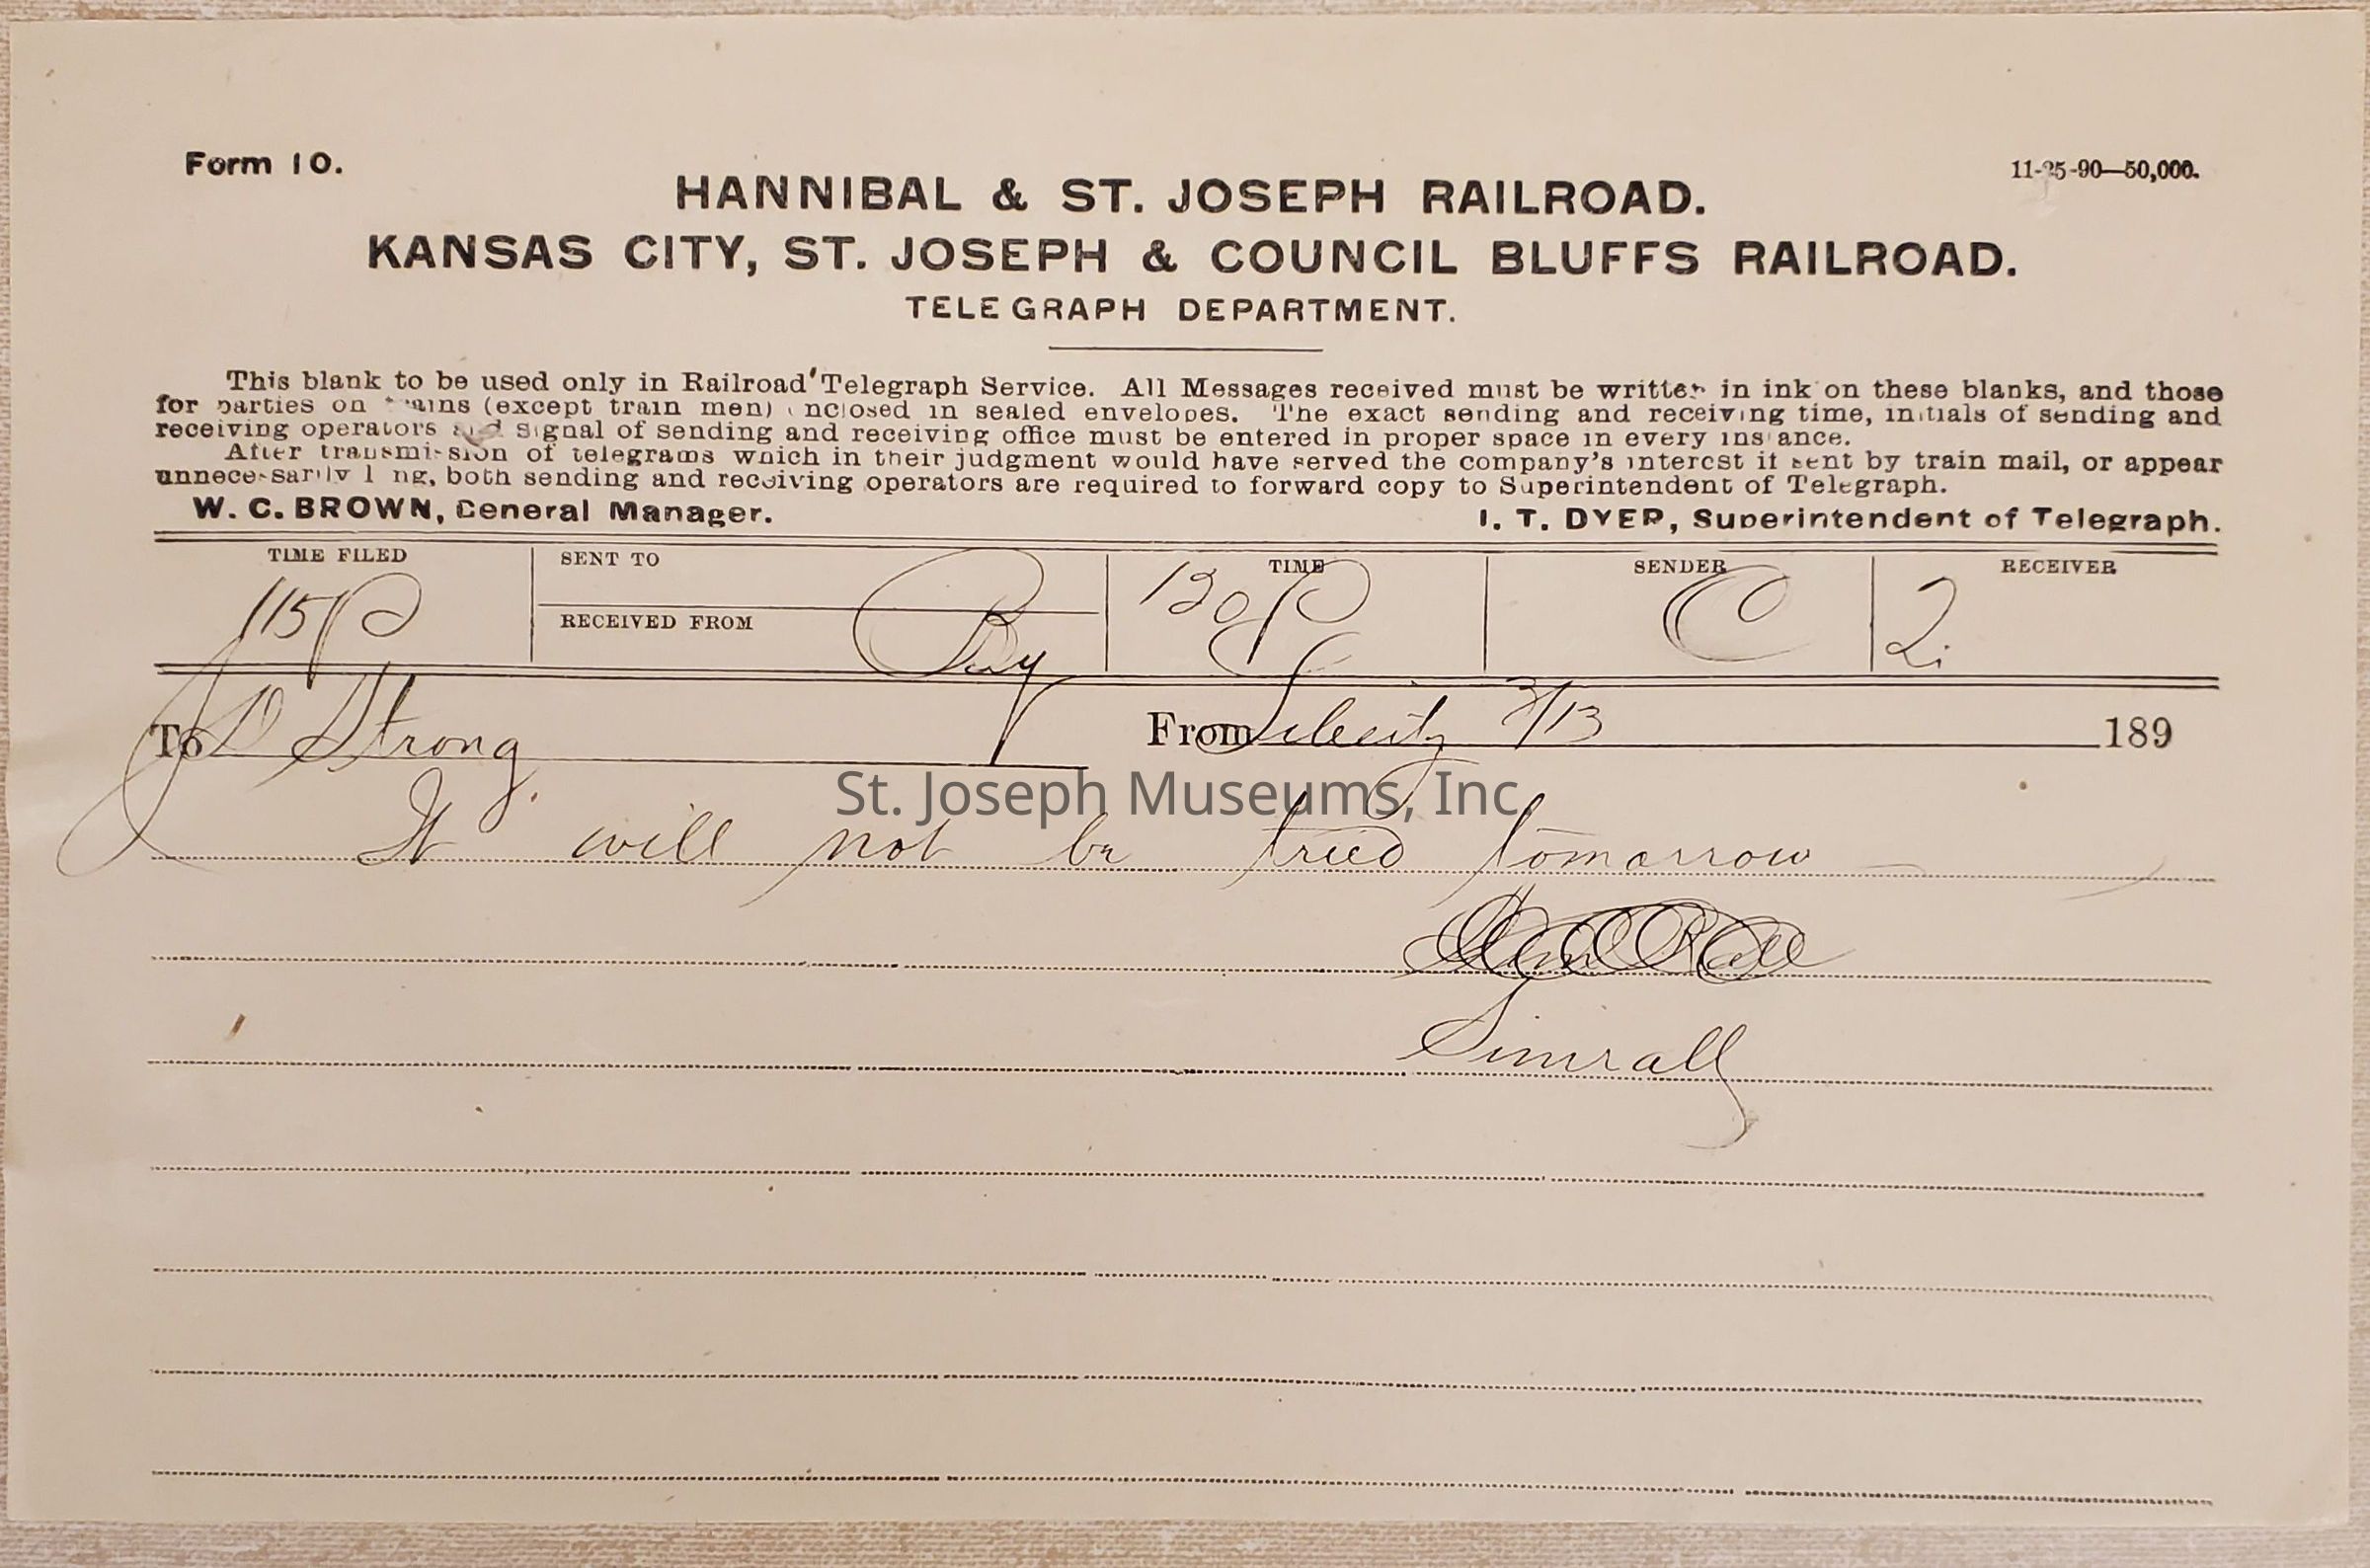 Form 10.
11-25-90—50,000.
HANNIBAL & ST. JOSEPH RAILROAD.
KANSAS CITY, ST. JOSEPH & COUNCIL BLUFFS RAILROAD.
TELEGRAPH DEPARTMENT.
This blank to be used only in Railroad Telegraph Service. All Messages received must be written in ink on these blanks, and those
for parties on trains (except train men) inclosed in sealed envelopes. The exact sending and receiving time, initials of sending and
receiving operators and signal of sending and receiving office must be entered in proper space in every instance.
After transmission of telegrams which in their judgment would have served the company's interest if sent by train mail, or appear
unnecessarily long, both sending and receiving operators are required to forward copy to Superintendent of Telegraph.
W. C. BROWN, General Manager.
I. T. DYER, Superintendent of Telegraph.
TIME FILED SENT TO TIME SENDER RECEIVER
115P 130P C
RECEIVED FROM
To J D Strong From 3/13 189
St. Joseph Museums, Inc.
It will not be tried tomorrow
Simrall